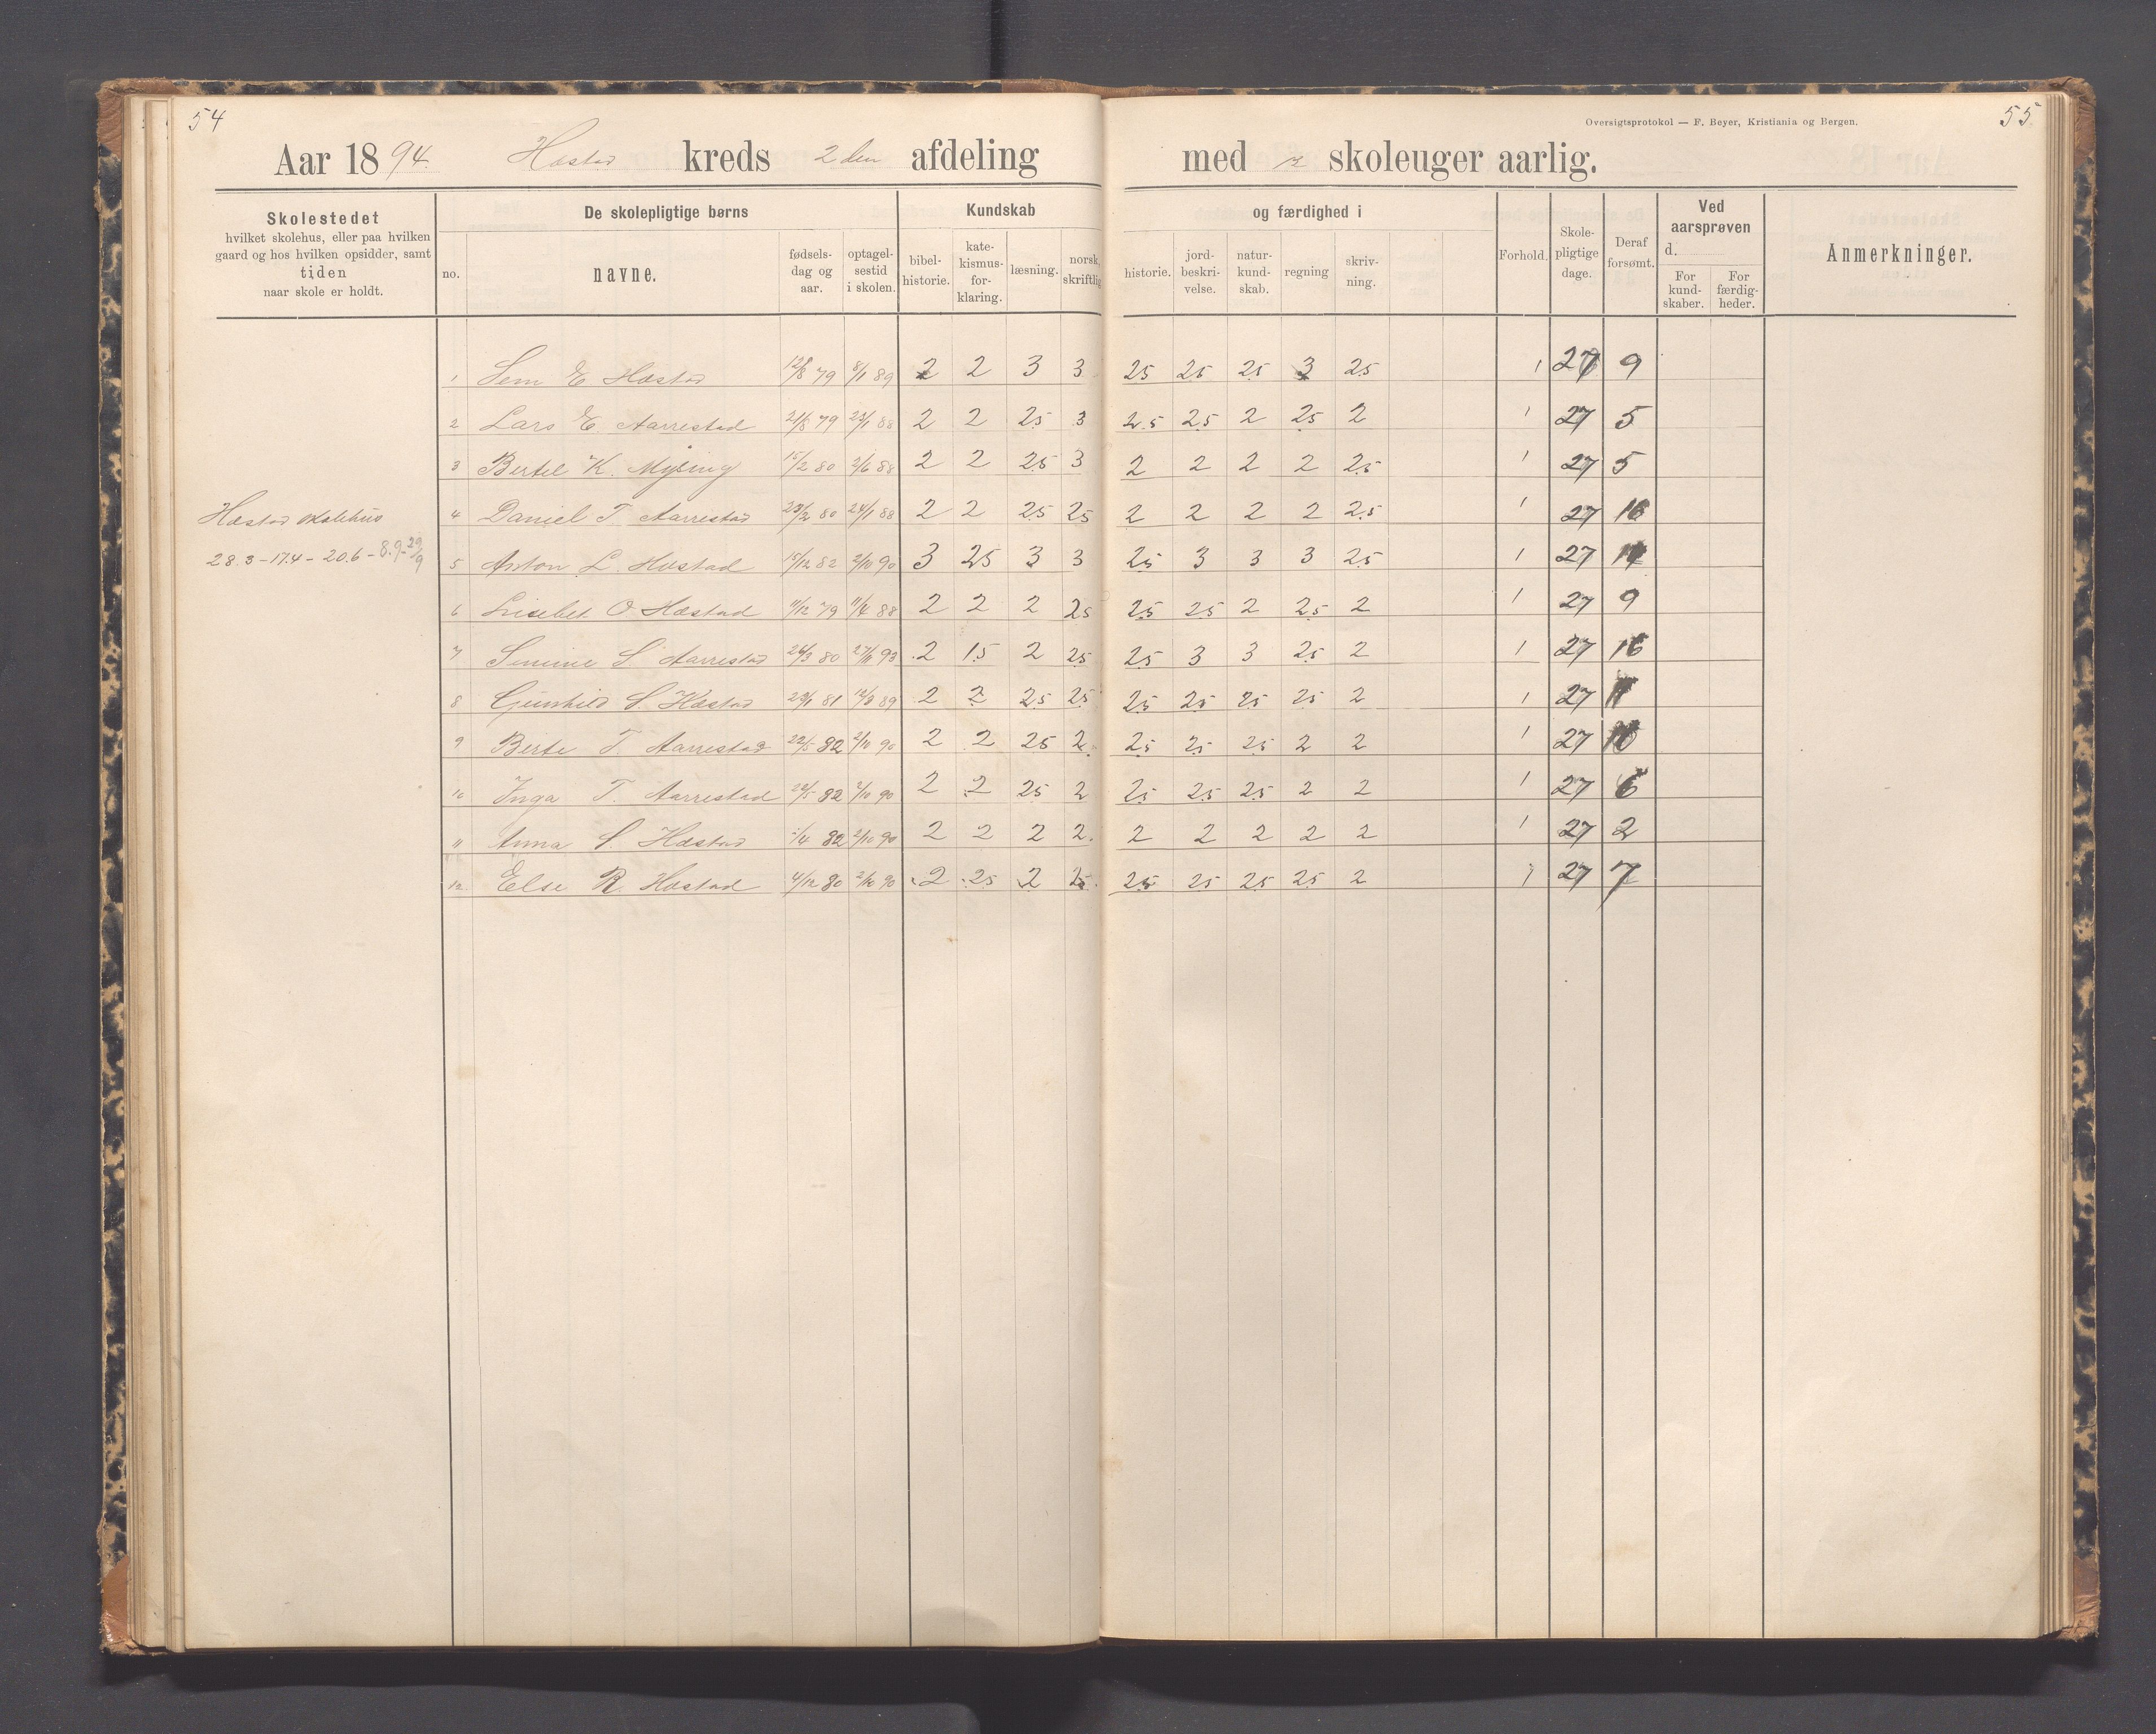 54
Oversigtsprotokol — F. Beyer, Kristiania og Bergen.
55
Aar 1894. Hæstad kreds 2den afdeling med skoleuger aarlig.
Skolestedet
hvilket skolehus, eller paa hvilken
gaard og hos hvilken opsidder, samt
tiden
naar skole er holdt.
De skolepligtige børns
no. navne. fødsels-dag og aar. optagel-sestid i skolen.
Kundskab og færdighed i
bibel-historie. kate-kismus-for-klaring. læsning. norsk, skriftlig historie. jord-beskri-velse. natur-kund-skab. regning skriv-ning.
Forhold. Skole-pligtige dage. Deraf forsømt.
Ved aarsprøven d.
For kund-skaber. For færdig-heder.
Anmerkninger.
Hæstad skolehus
28.3-17.4-20.6-8.9-29/9
1 Sem E Hæstad 79 8/1 89 2 2 3 3 25 25 25 3 25 1 27 9
2 Lars E. Aarrestad 21/8 79 88 2 2 25 3 2.5 25 2 25 2 1 27 5
3 Bertel K. Mysing 15/2 80 2/6 88 2 2 25 3 2 2 2 2 25 1 27 5
4 Daniel T. Aarrestad 23/2 80 24/1 88 2 2 25 25 2 2 2 2 2.5 1 27 16
5 Anton L. Hæstad 15/12 82 2/10 90 3 25 3 3 25 3 3 3 25 1 27
6 Lisebet O Hæstad 11/12 79 11/4 88 2 2 2 25 25 25 2 25 2 1 27 9
7 Simine S Aarrestad 26/3 80 93 2 15 2 25 25 3 3 25 2 1 27 16
8 Gunhild S Hæstad 23/1 81 12/3 89 2 2 25 25 25 25 25 25 2 1 27
9 Berte T. Aarrestad 22/5 82 2/10 90 2 2 25 2 25 25 25 2 2 1 27
10 Inga T. Aarrestad 22/5 82 2/10 90 2 2 25 2 25 25 25 2 2 1 27 6
11 Anna S Hæstad /4 82 2/10 90 2 2 2 2 2 2 2 2 2 1 27 2
12 Else R. Hæstad 4/12 80 2/10 90 2 25 2 25 25 25 25 25 2 1 27 7